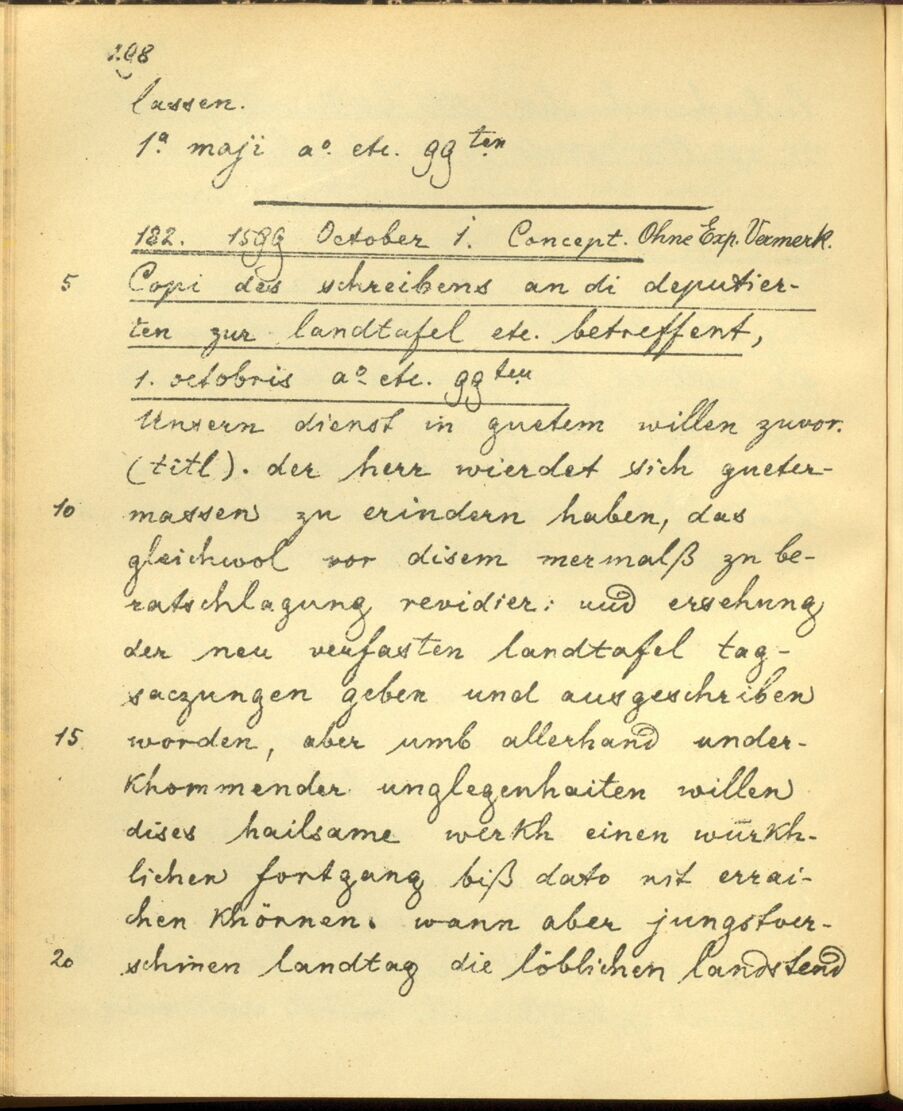 298
lassen.
1ª maji aº etc. 99ten
182. 1599 October 1. Concept. Ohne Exp. Vermerk.
5 Copi des schreibens an di deputier-
ten zur landtafel etc. betreffent,
1. octobris aº etc. 99ten
Unsern dienst in guetem willen zuvor.
(titl). der herr wierdet sich gueter-
10 massen zu erindern haben, das
gleichwol vor disem mermalß zu be-
ratschlagung revidier: und ersehung
der neu verfasten landtafel tag-
saczungen geben und ausgeschriben
15 worden, aber umb allerhand under-
khommender unglegenhaiten willen
dises hailsame werkh einen würkh-
lichen fortgang biß dato nit errai-
chen khönnen. wann aber jungstver-
20 schinen landtag die löblichen landstend